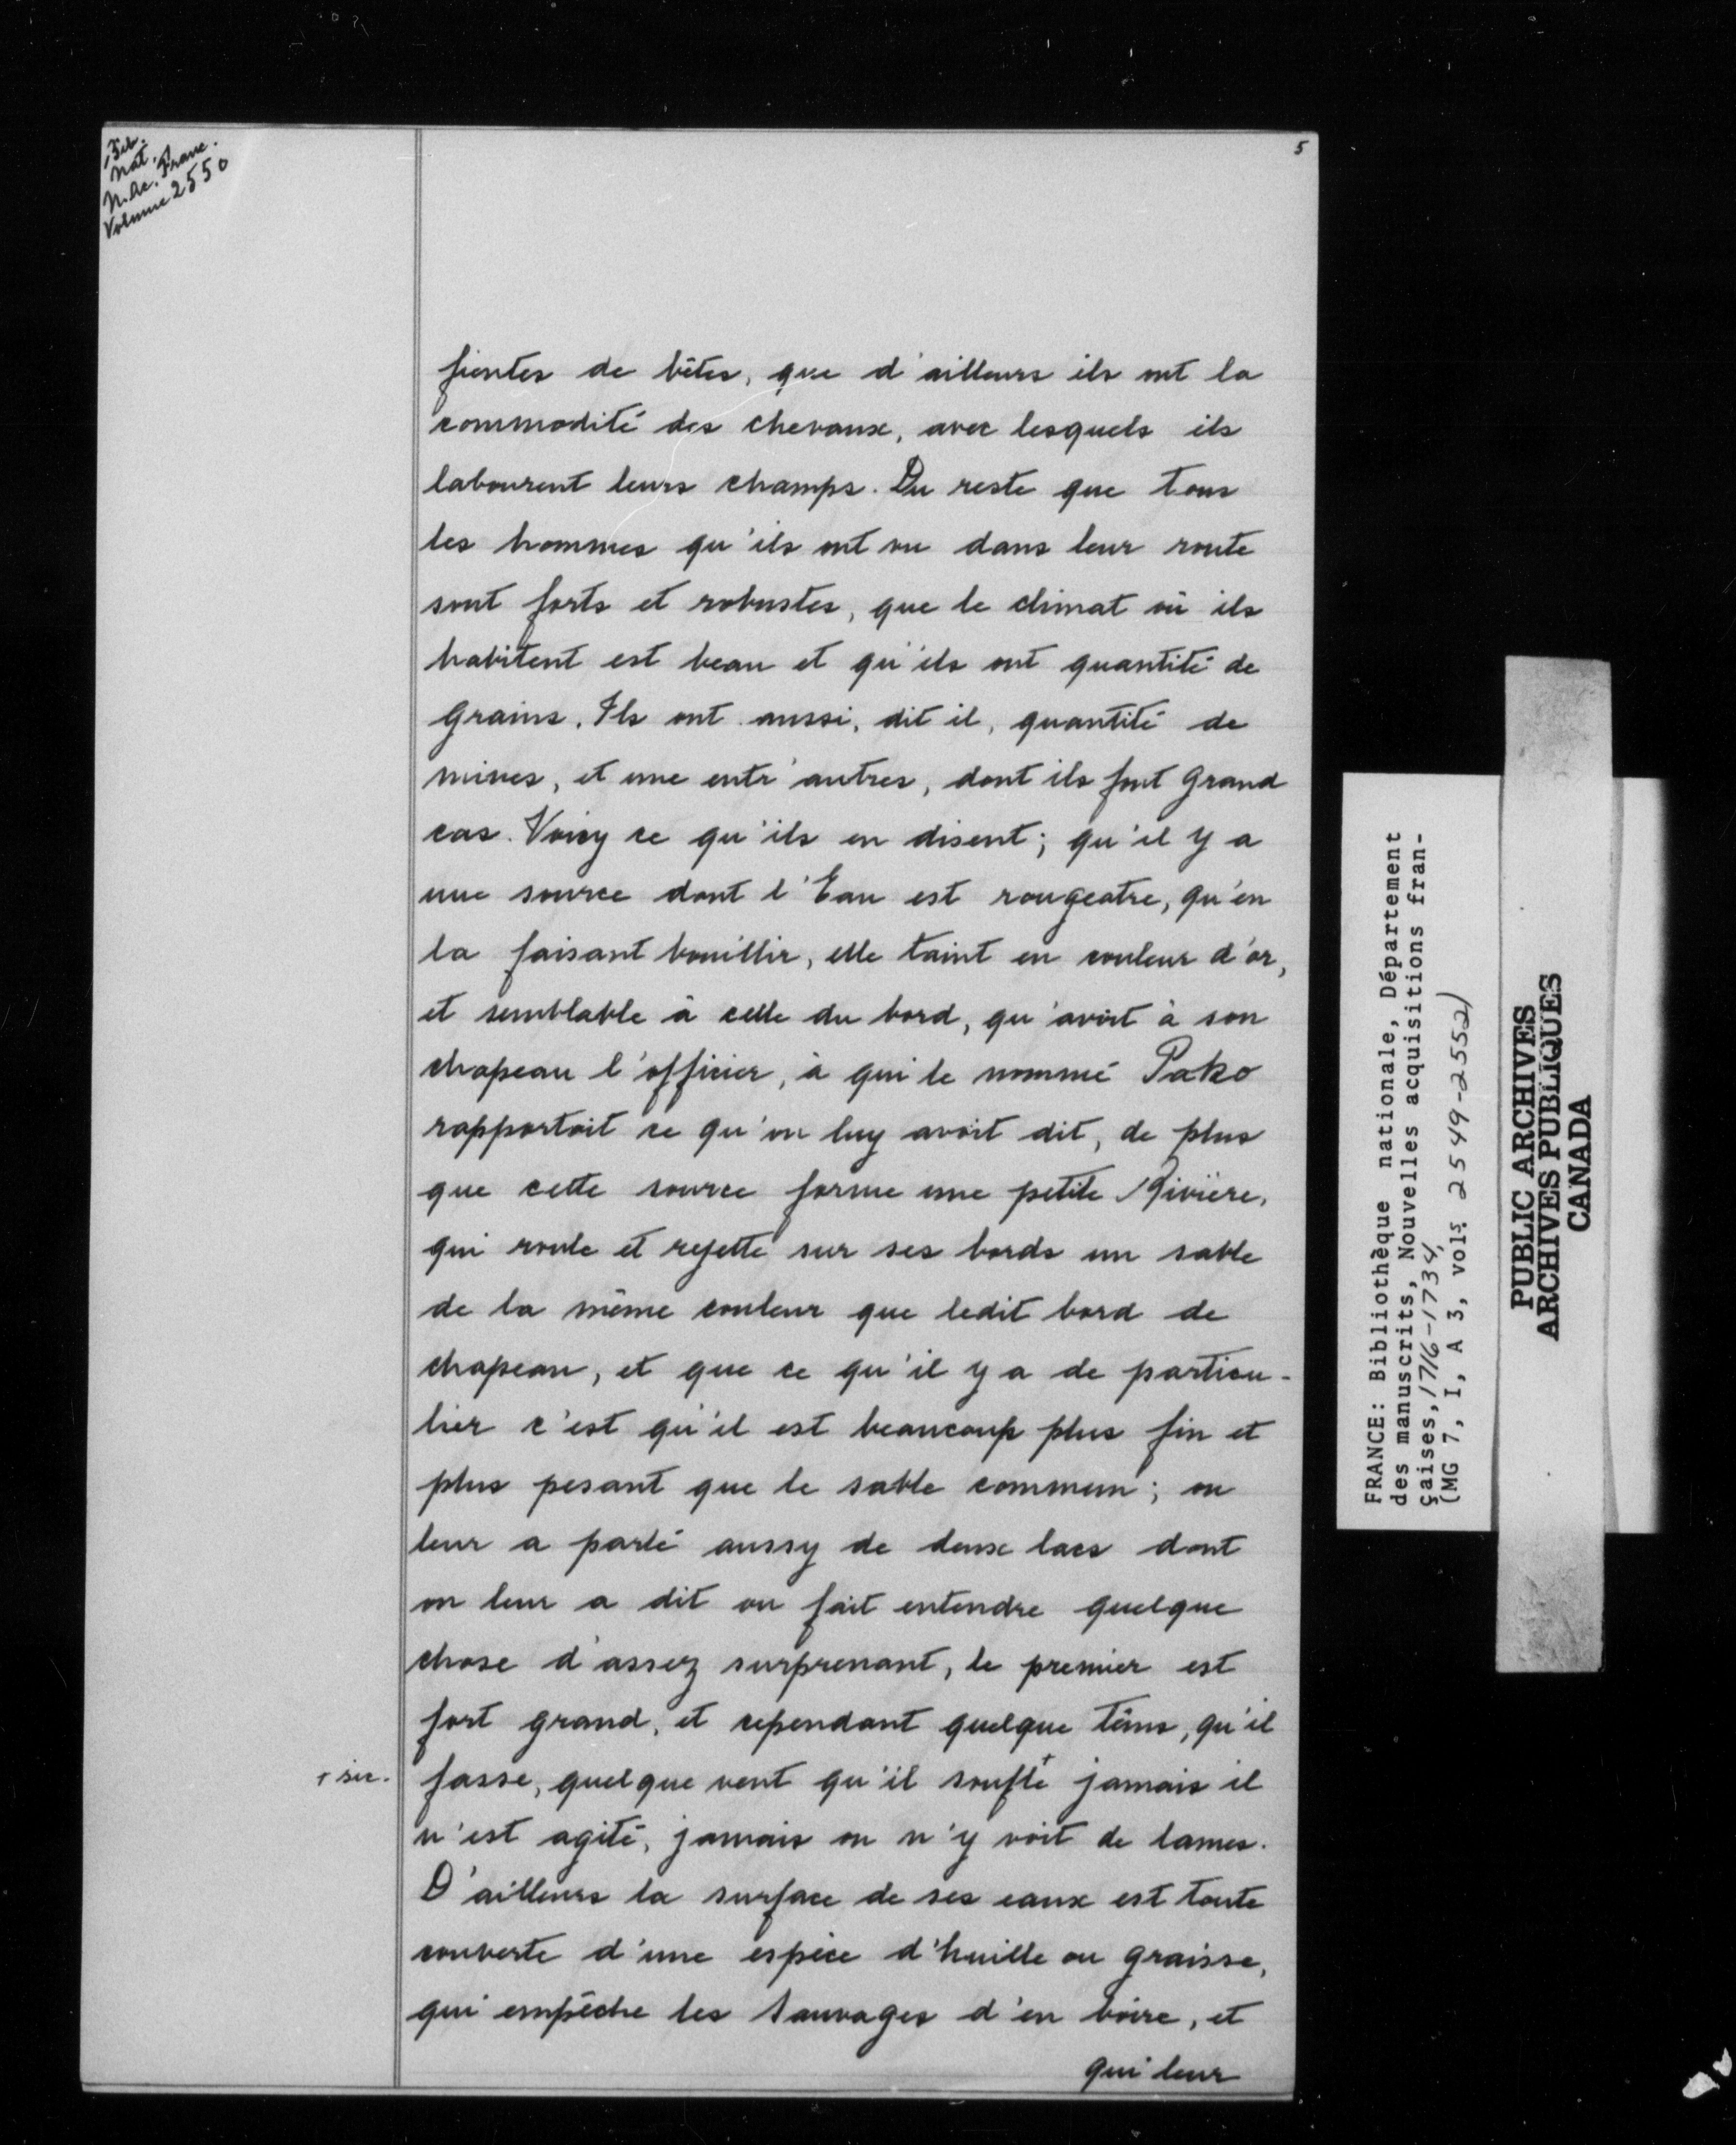 Bib.
Nat.
N. Ac. Franc.
Volume 2550
5
fientes de bêtes, que d'ailleurs ils ont la
commodité des chevaux, avec lesquels ils
labourent leurs champs. Du reste que tous
les hommes qu'ils ont vu dans leur route
sont forts et robustes, que le climat où ils
habitent est beau et qu'ils ont quantité de
Grains. Ils ont aussi, dit il, quantité de
mines, et une entr'autres, dont ils font Grand
cas. Voicy ce qu'ils en disent; qu'il y a
une source dont l'Eau est rougeatre, qu'en
la faisant bouillir, elle taint en couleur d'or,
et semblable à celle du bord, qu'avoit à son
chapeau l'officier, à qui le nommé Pako
rapportoit ce qu'on luy avoit dit, de plus
que cette source forme une petite Rivière,
qui roule et rejette sur ses bords un sable
de la même couleur que ledit bord de
chapeau, et que ce qu'il y a de particu-
lier c'est qu'il est beaucoup plus fin et
plus pesant que le sable commun; on
leur a parlé aussy de deux lacs dont
on leur a dit ou fait entendre quelque
chose d'assez surprenant, le premier est
fort grand, et cependant quelque têms, qu'il
+ sic. fasse, quelque vent qu'il soufle+ jamais il
n'est agité, jamais on n'y voit de lames.
D'ailleurs la surface de ses eaux est toute
couverte d'une espèce d'huille ou graisse,
qui empêche les Sauvages d'en boire, et
qui leur
FRANCE: Bibliothèque nationale, Département
des manuscrits, Nouvelles acquisitions fran-
çaises, 1716-1734,
(MG 7, I, A 3, vols. 2549-2552)
PUBLIC ARCHIVES
ARCHIVES PUBLIQUES
CANADA